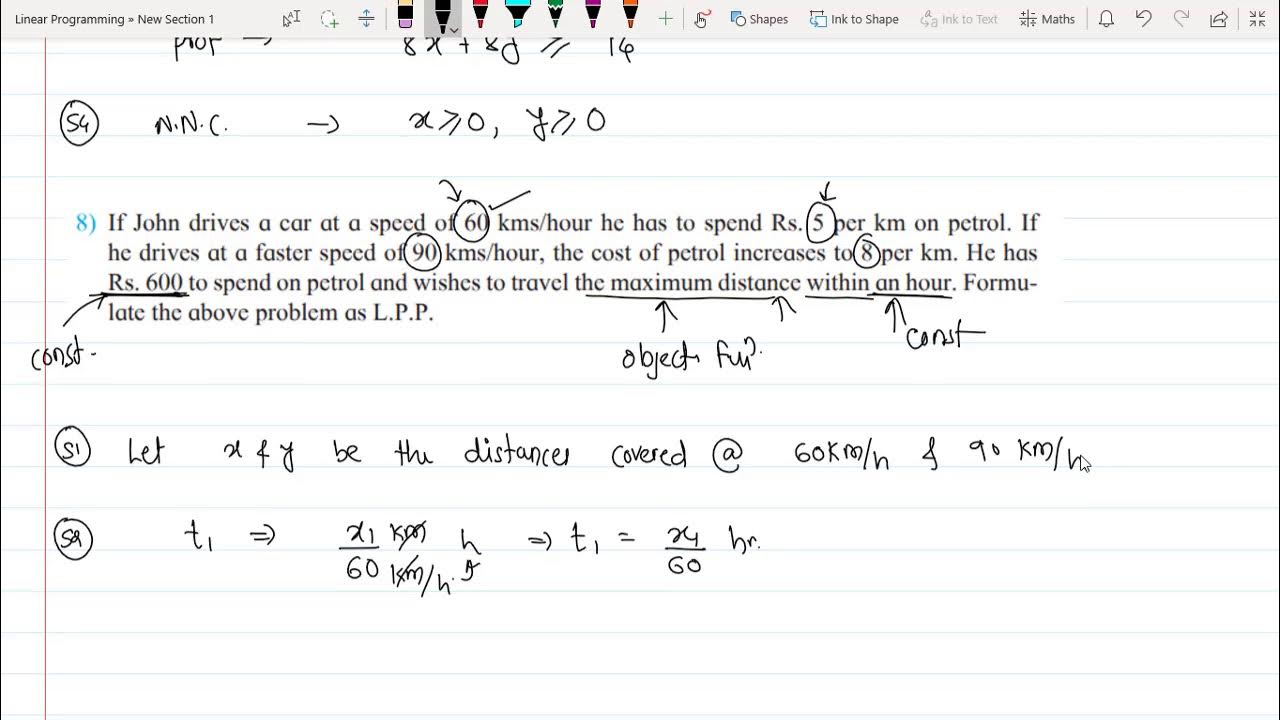 Linear Programming » New Section 1
Shapes Ink to Shape Ink to Text Maths
8x + 8y ≥ 14
S4 N.N.C. → x ≥ 0, y ≥ 0
8) If John drives a car at a speed of 60 kms/hour he has to spend Rs. 5 per km on petrol. If
he drives at a faster speed of 90 kms/hour, the cost of petrol increases to 8 per km. He has
Rs. 600 to spend on petrol and wishes to travel the maximum distance within an hour. Formu-
late the above problem as L.P.P.
const.
object. Fun?.
const
S1 Let x & y be the distances covered @ 60KM/h & 90 KM/h
S2 t₁ ⇒ x₁ km / 60 km/h h ⇒ t₁ = x₁/60 hr.